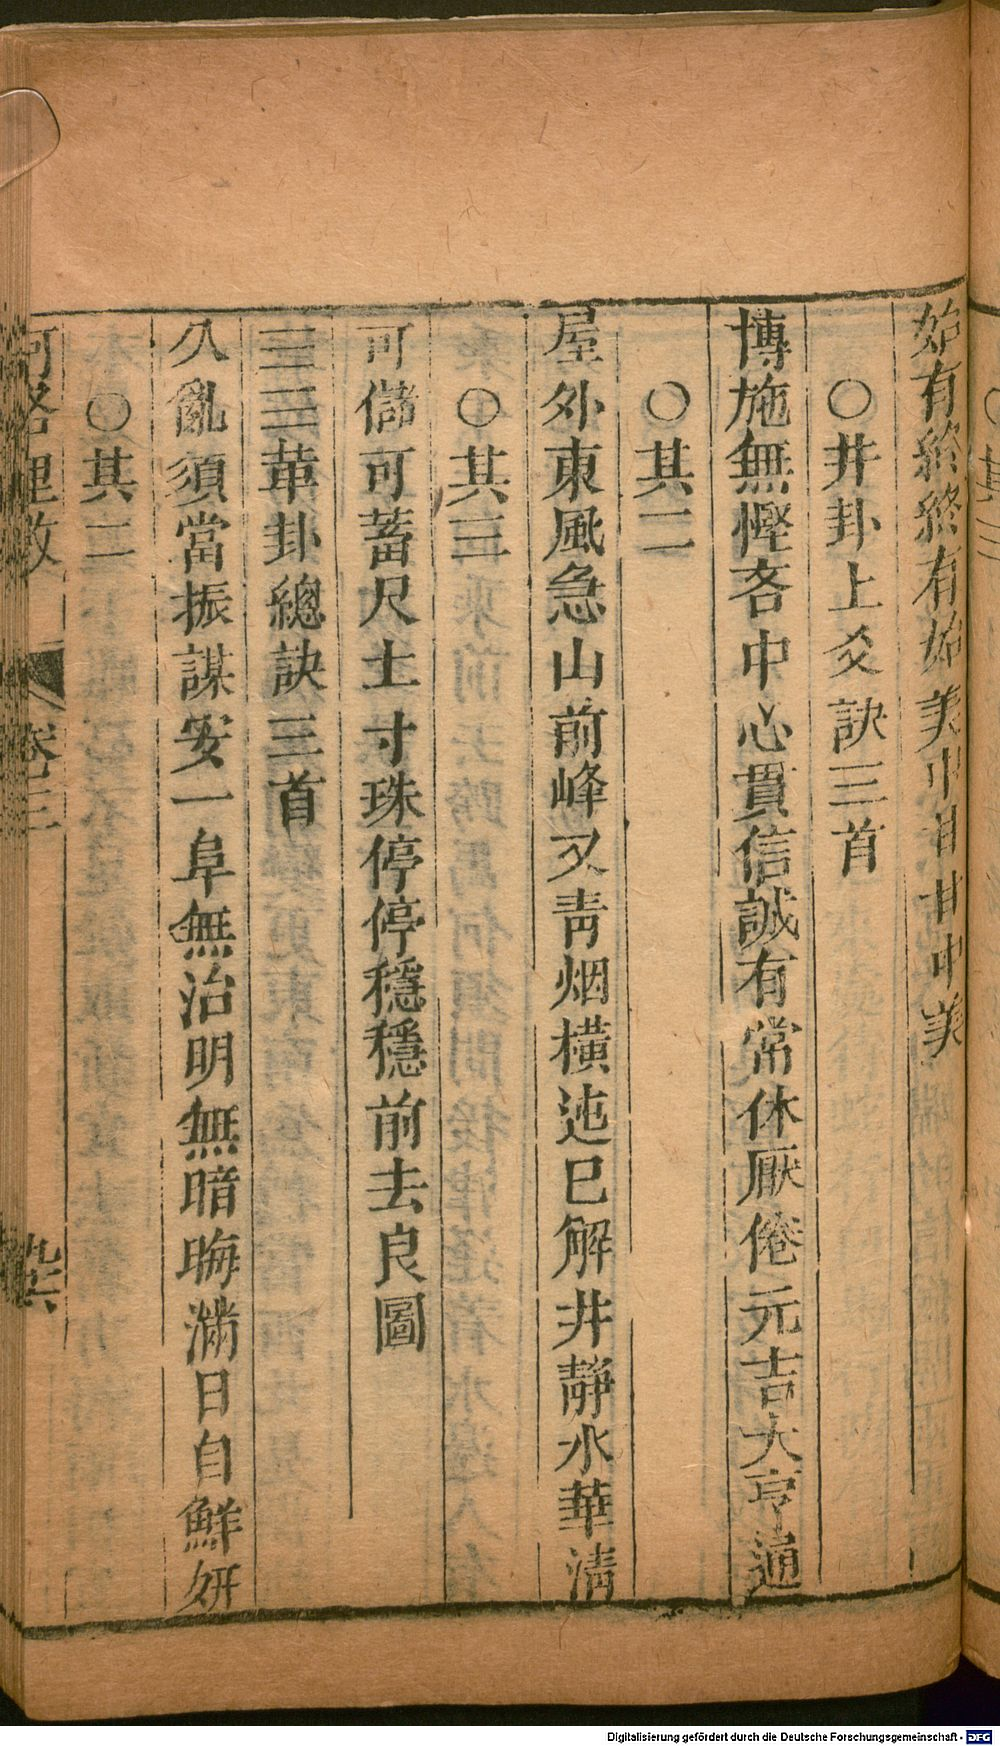 始有終終有始美中甘甘中美
○井卦上爻訣三首
博施無慳吝中心貫信誠有常休厭倦元吉大亨通
○其二
屋外東風急山前峰又青烟橫迤已解井靜水華清
○其三
可儲可蓄尺土寸珠停停穩穩前去良圖
䷰革卦總訣三首
久亂須當振謀安一阜無治明無暗晦滿日自鮮妍
○其二
河洛理数 卷三 九六
Digitalisierung gefördert durch die Deutsche Forschungsgemeinschaft - DFG